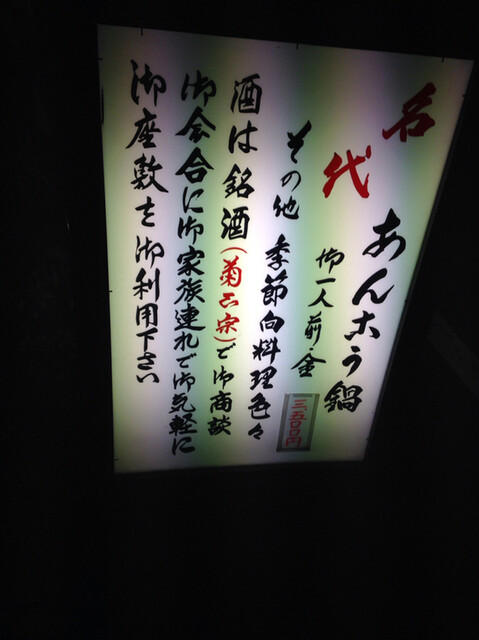 名代
あんこう鍋
御一人前・金
三五〇〇円
その他 季節向料理色々
酒は銘酒(菊正宗)で御商談
御会合に御家族連れで御気軽に
御座敷を御利用下さい